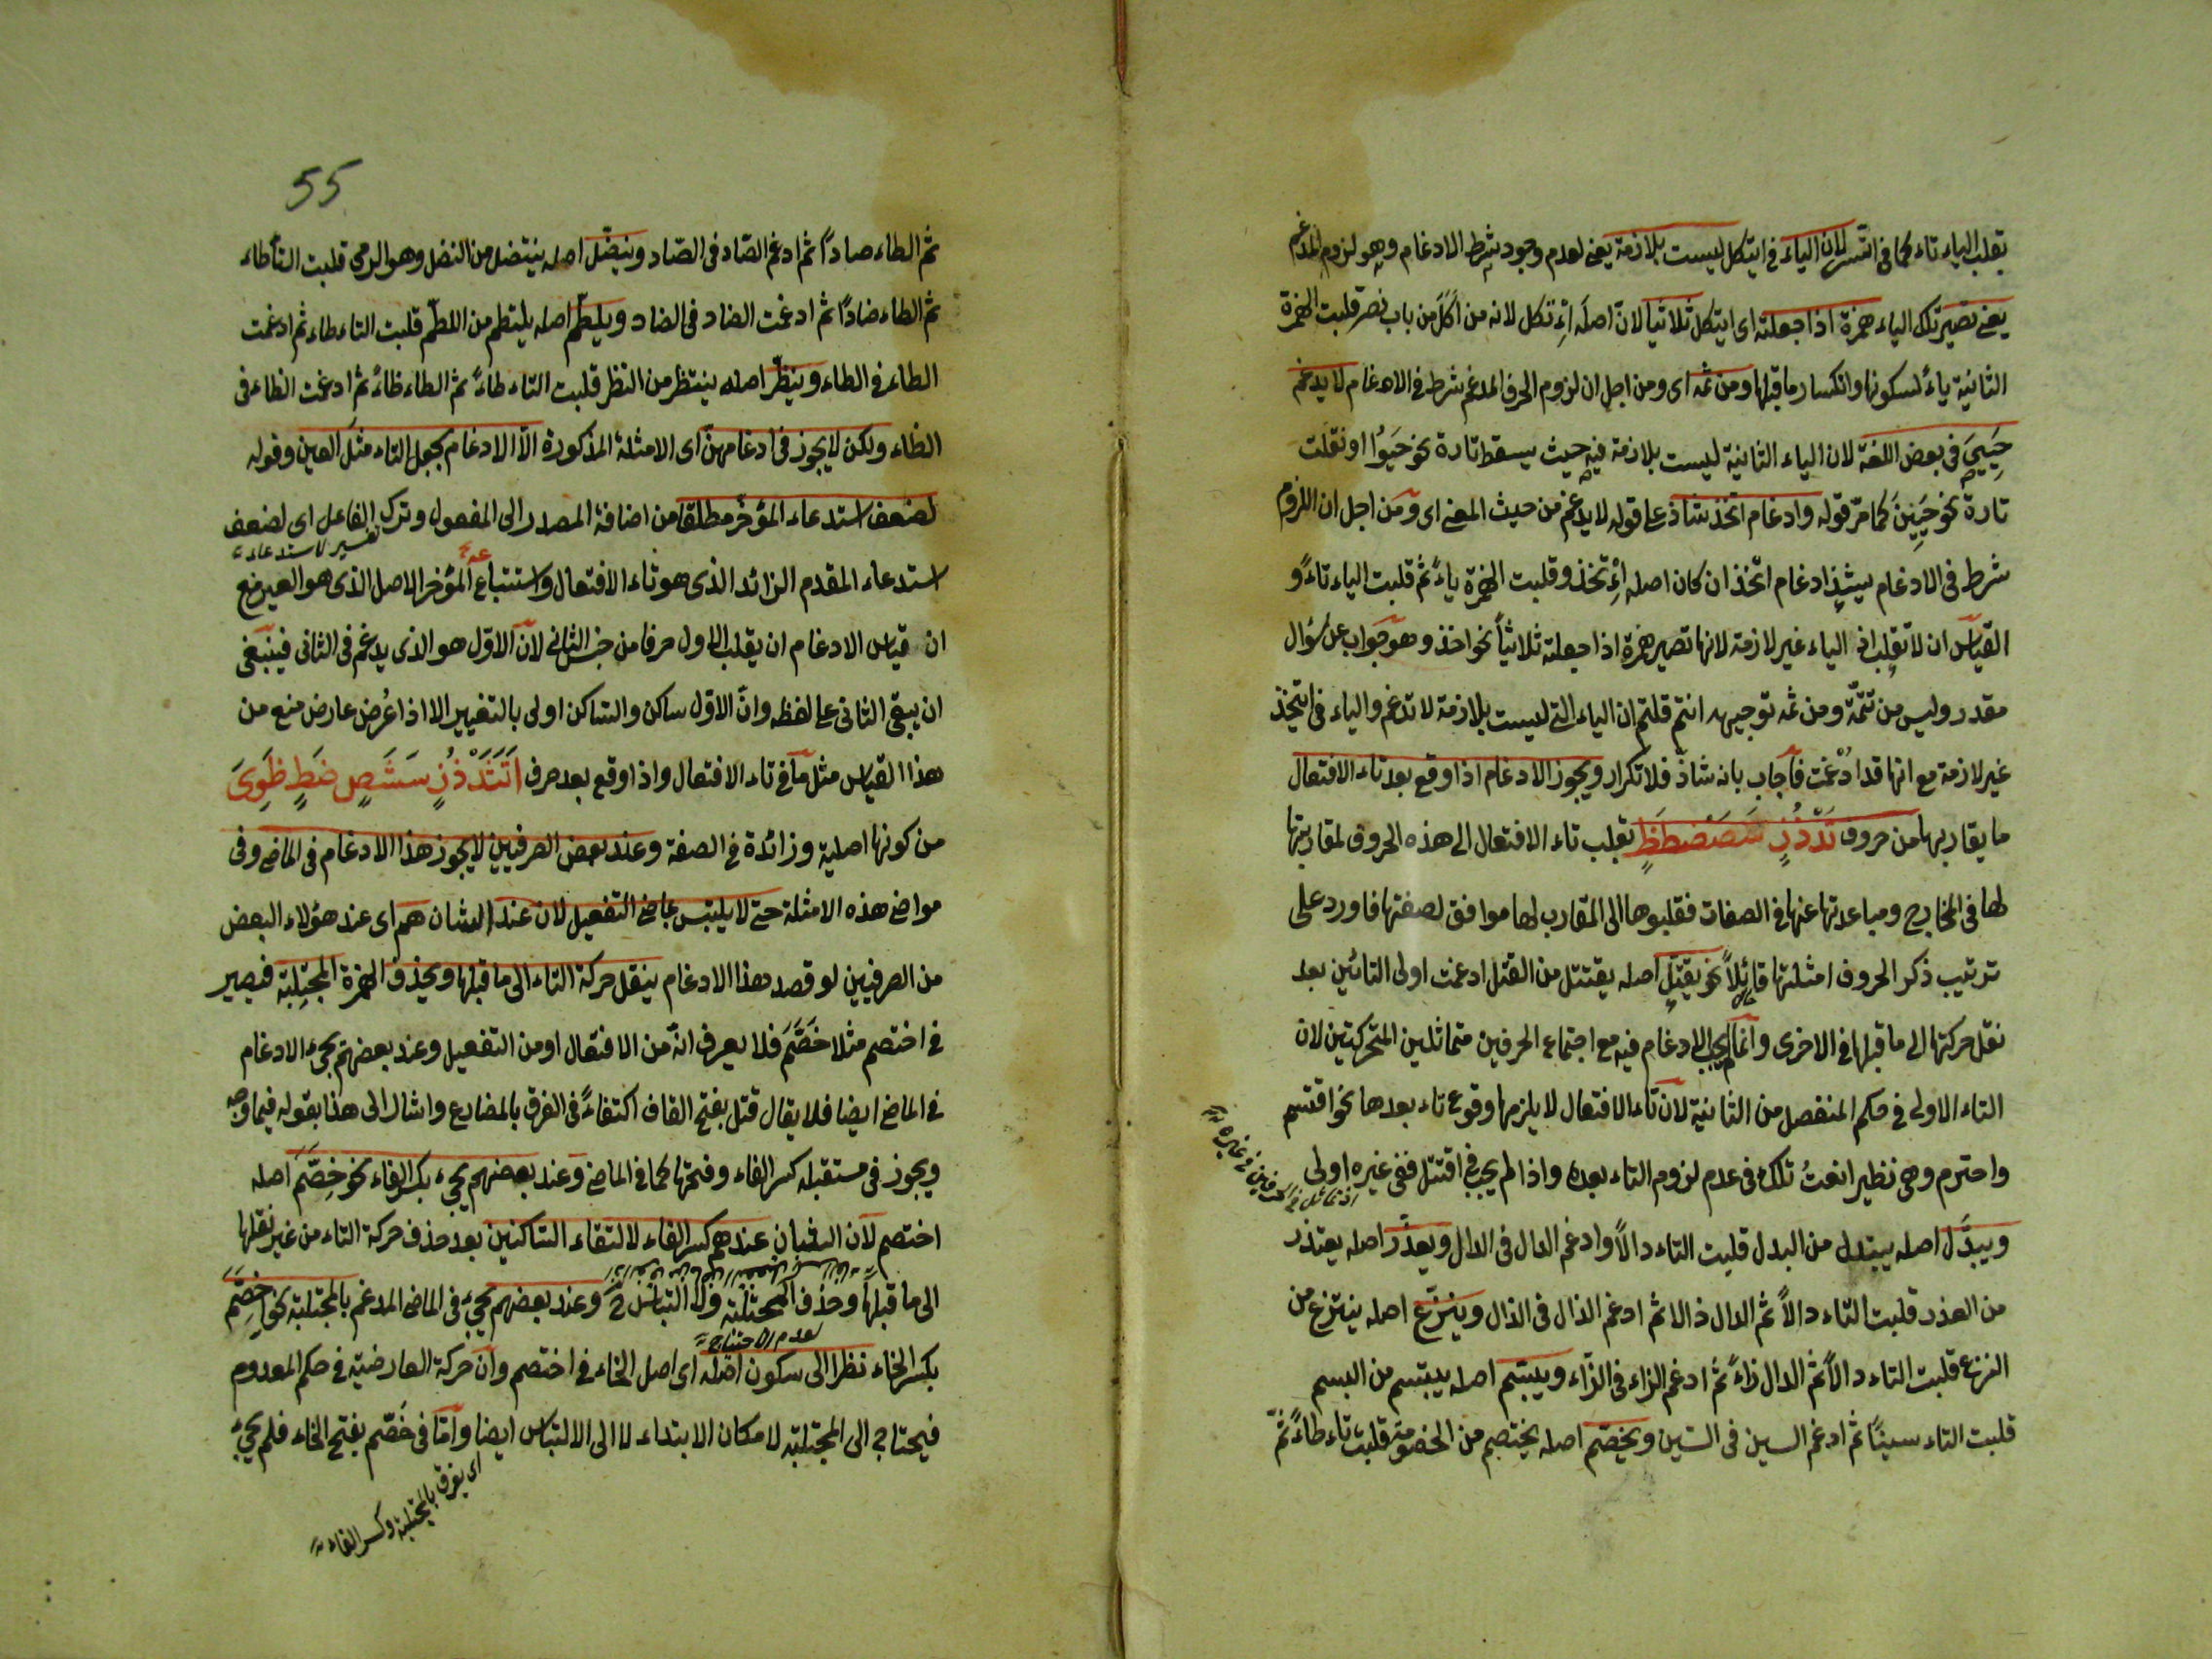 بقلب الياء تاء كما فى اتسر لان الياء فى ايتكل ليست بلازمة يعنى لعدم وجود شرط الادغام وهو لزوم المدغم
يعنى تصير تلك الياء همزة اذا جعلته اى ايتكل ثلاثيا لان اصله اِئْتكل لانه من اَكَلَ من باب نصر قلبت الهمزة
الثانية ياءً لسكونها وانكسار ما قبلها ومن ثمه اى ومن اجل ان لزوم الحرف المدغم شرط فى الادغام لا يدغم
حَيِىَ فى بعض اللغة لان الياء الثانية ليست بلازمة فيه حيث يسقط تارة نحو حَيُوا او نقلت
تارة نحو كما مرّ قوله وادغام اتخذ شاذ على قوله لا يدغم من حيث المعنى اى ومن اجل ان اللزوم
شرط فى الادغام ادغام اتّخذ ان كان اصله اِئْتخذ وقلبت الهمزة ياءً ثم قلبت الياء تاءً و
القياس ان لا تقلب الياء غير لازمة لانها تصير همزة اذا جعلته ثلاثياً نحو اخذ وهو جواب عن سؤال
مقدر وليس من تتمّة ومن ثمه توجيهه انتم قلتم ان الياء التى ليست بلازمة لا تدغم والياء فى ايتخذ
غير لازمة مع انها قد ادُغمت فأجاب بانه شاذّ فلا تكرار ويجوز الادغام اذا وقع بعد تاء الافتعال
ما يقاربها من حروف تَدْذُزِ سَصَضطَظٍ تقلب تاء الافتعال الى هذه الحروف لمقاربتها
لها فى المخارج ومباعدتها عنها فى الصفات فقلبوها الى المقارب لها موافق لصفتها فاورد على
ترتيب ذكر الحروف امثلتها قائلاً نحو يقتل اصله يقتتل من القتل ادغمت اولى التائين بعد
نقل حركتها الى ما قبلها فى الاخرى وانما لم يجب الادغام فيه مع اجتماع الحرفين متماثلين المتحركتين لان
التاء الاولى فى حكم المنفصل من الثانية لان تاء الافتعال لا يلزمها وقوع تاء بعدها نحو اقتسم
واحترم وهى نظير انعتُ تلك فى عدم لزوم التاء بعدها واذا لم يجب فى اقتتل ففى غيره اولى
ويبدّل اصله يبتدل من البدل قلبت التاء دالاً وادغم الدال فى الدال ويعذّر اصله يعتذر
من العذر قلبت التاء دالاً ثم الدال ذالا ثم ادغم الذال فى الذال وينزّع اصله ينتزع من
النزع قلبت التاء دالاً ثم الدال زاءً ثم ادغم الزاء فى الزاء ويبسّم اصله يبتسم من البسم
قلبت التاء سيناً ثم ادغم السين فى السين ويخصّم اصله يختصم من الخصومة قلبت تاء طاءً ثمّ
55
ثم الطاء صاداً ثم ادغم الصّاد فى الصّاد وينضّل اصله ينتضل من النضل وهو الرمى قلبت التاء طاء
ثم الطاء ضاداً ثم ادغمت الضاد فى الضاد ويلطّم اصله يلتطم من اللطم قلبت التاء طاء ثم ادغمت
الطاء فى الطاء وينظّر اصله ينتظر من النظر قلبت التاء طاءً ثم الطاء ظاءً ثم ادغمت الظاء فى
الظاء ولكن لا يجوز فى ادغامهنّ اى الامثلة المذكورة الّا الادغام بجعل التاء مثل العين وقوله
لضعف استدعاء المؤخر مطلقا من اضافة المصدر الى المفعول وترك الفاعل اى لضعف
تفسير لاستدعاء
استدعاء المقدم الزائد الذى هو تاء الافتعال واستتباع المؤخر الاصل الذى هو العين مع
ان قياس الادغام ان يقلب الاول حرفا من جنس الثانى لان الاوّل هو الذى يدغم فى الثانى فينبغى
ان يبقى الثانى على لفظه وانّ الاوّل ساكن والساكن اولى بالتغيير الا اذا عُرض عارض منع من
هذا القياس مثل ما فى تاء الافتعال واذا وقع بعد حرف اتَثَدْذُزٍ سَشَصٍ ضَطٍ ظَوِىَ
من كونها اصلية وزائدة فى الصفة وعند بعض الصرفيين لا يجوز هذا الادغام فى الماضى وفى
مواضى هذه الامثلة حتى لا يلتبس بماضى التفعيل لان عند الشان هم اى عند هؤلاء البعض
من الصرفيين لو قصد هذا الادغام ينقل حركة التاء الى ما قبلها ويحذف الهمزة المجتلبة فيصير
فى اختصم مثلا خَصَّمَ فلا يعرف انه من الافتعال او من التفعيل وعند بعضهم يجىء الادغام
فى الماضى ايضا فلا يقال قتل بفتح القاف اكتفاءً فى الفرق بالمضارع واشار الى هذا بقوله فيما وجه
ويجوز فى مستقبله كسر الفاء وفتحها كما فى الماضى وعند بعضهم يجىء بكسر الفاء نحو خِصَّمَ اصله
اختصم لان عندهم كسر الفاء لالتقاء الساكنين بعد حذف حركة التاء من غير نقلها
الى ما قبلها وحذف المجتلبة التباس ح وعند بعضهم يجىء فى الماضى المدغم بالمجتلبة نحو اِخِصَّمَ
لعدم الاحتياج
بكسر الخاء نظرا الى سكون اصله اى اصل الخاء فى اختصم وان حركة العارضية فى حكم المعدوم
فيحتاج الى المجتلبة لا مكان الابتداء لا الى الالتباس ايضا وامّا فى خَصّم بفتح الخاء فلم يجىء
اى يفرق بالمجتلبة وكسر الفاء